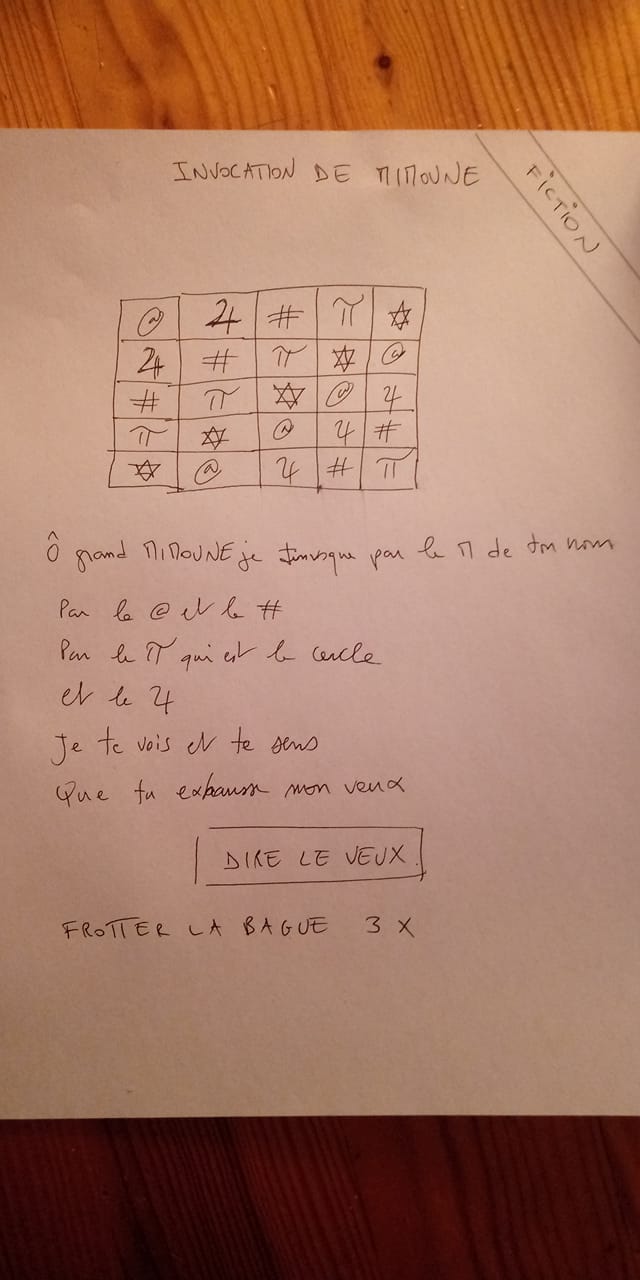 INVOCATION DE MIMOUNE
FICTION
@ ♃ # π ✡
♃ # π ✡ @
# π ✡ @ ♃
π ✡ @ ♃ #
✡ @ ♃ # π
Ô grand MIMOUNE je t'invoque par le M de ton nom
Par le @ et le #
Par le π qui est le cercle
et le ♃
Je te vois et te sens
Que tu exhausse mon veux
DIRE LE VEUX
FROTTER LA BAGUE 3 X